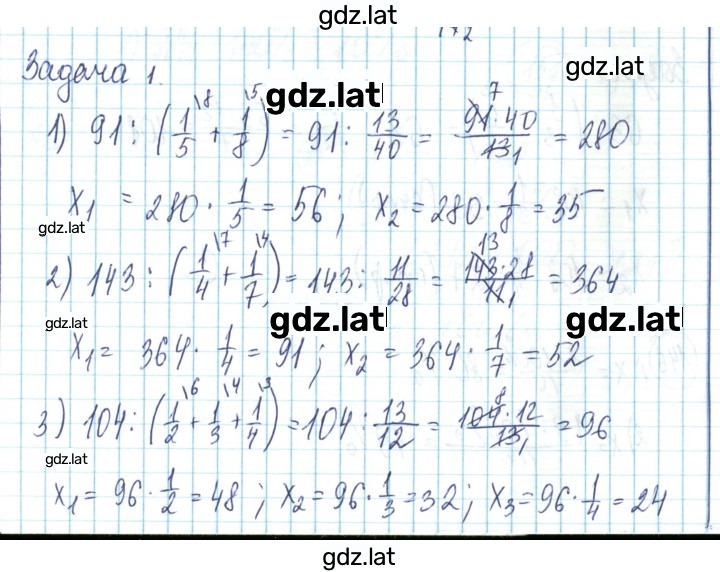 gdz.lat
Задача 1.
gdz.lat
gdz.lat
1) 91 : (1/5 \8 + 1/8 \5) = 91 : 13/40 = (91 · 40)/13 7 1 = 280
x₁ = 280 · 1/5 = 56 ; x₂ = 280 · 1/8 = 35
gdz.lat
2) 143 : (1/4 \7 + 1/7 \4) = 143 : 11/28 = (143 · 28)/11 13 1 = 364
gdz.lat gdz.lat gdz.lat
x₁ = 364 · 1/4 = 91 ; x₂ = 364 · 1/7 = 52
3) 104 : (1/2 \6 + 1/3 \4 + 1/4 \3) = 104 : 13/12 = (104 · 12)/13 8 1 = 96
gdz.lat
x₁ = 96 · 1/2 = 48 ; x₂ = 96 · 1/3 = 32 ; x₃ = 96 · 1/4 = 24
gdz.lat